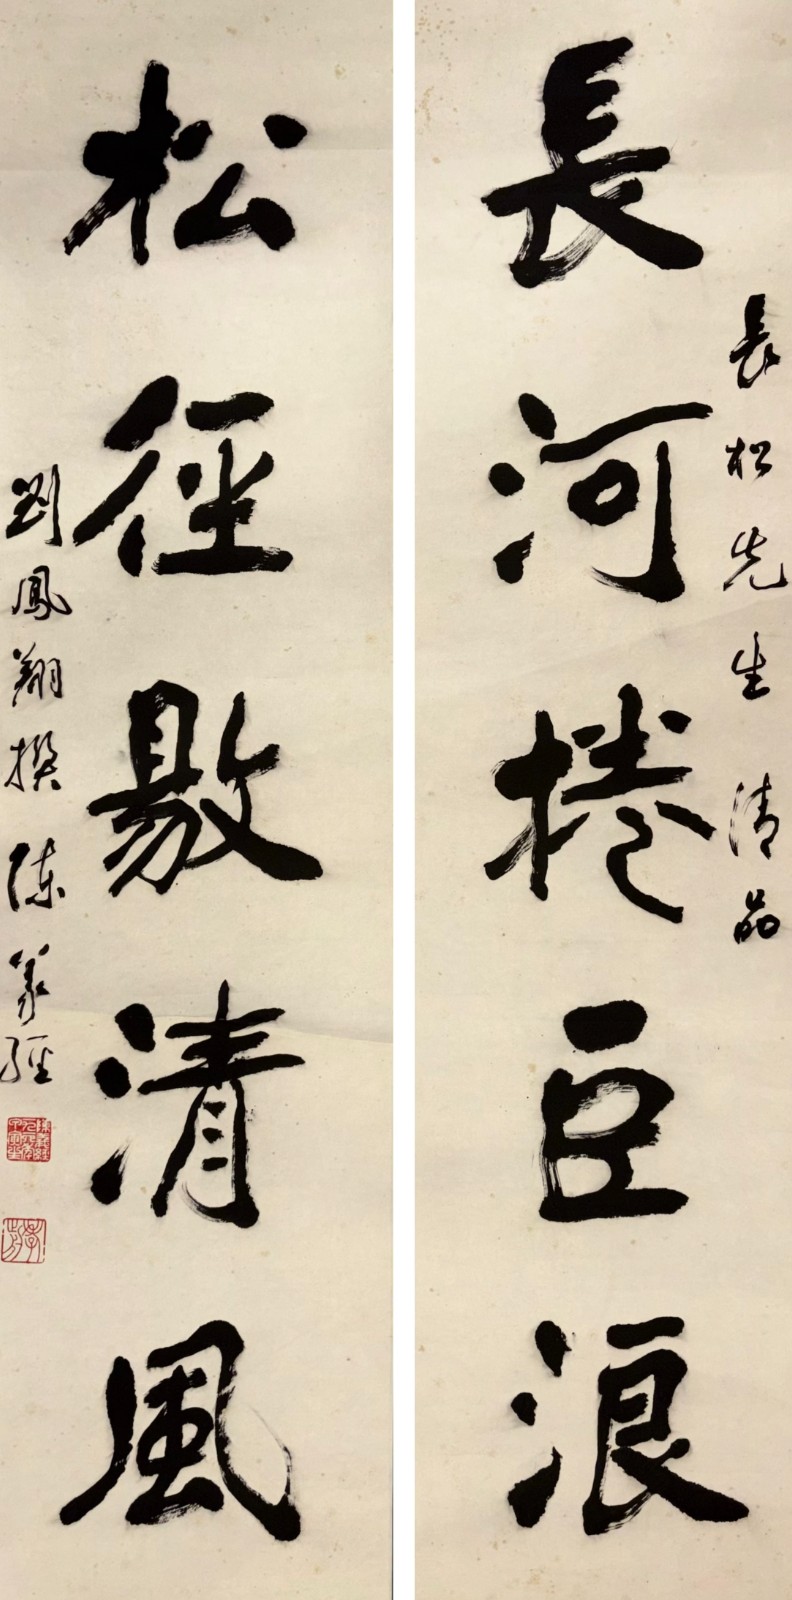 長松先生清品
長河捲巨浪
松徑敭清風
劉鳳翔撰 陳羲經